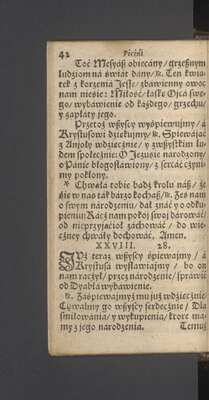 42 Pieśni
Toć Mesyáß obiecány / grzeßnym
ludziom ná świát dány / ꝛc. Ten kwiá-
tek z korzenia Jesse / zbáwienny owoc
nam niesie: Miłość / łáskę Oycá swe-
go / wybáwienie od káżdego / grzechu /
y zapłáty jego.
Przetoż wßyscy wyśpiewuymy / á
Krystusowi dziękuymy / ꝛc. Spiewájąc
z Anjoły wdzięcznie / y zwßystkim lu-
dem społecznie: O Jezusie národzony /
o Pánie błogosłáwiony / z sercá ćczyni-
my pokłony.
* Chwałá tobie bądź krolu náß / że-
śie w nas ták bárzo kochaß / ꝛc. Żeś nam
o swym národzeniu / dał znáć y o odku-
pieniu: Rácż nam pokoy swoy dárowáć /
od nieprzyjaćioł záchowáć / do wie-
czney chwały dochowáć, Amen.
XXVIII. 28.
JUż teraz wßyscy śpiewaymy / á
Krystusá wysłáwiaymy / bo on
nam rácżył / przez národzenie / spráwić
od Dyabłá wybáwienie.
ꝛc. Záśpiewaymyż mu już wdzięcznie /
Chwalmy go wßyscy serdecznie / Dla
smiłowánia / y wykupienia / ktore má-
my z jego národzenia. Temuż